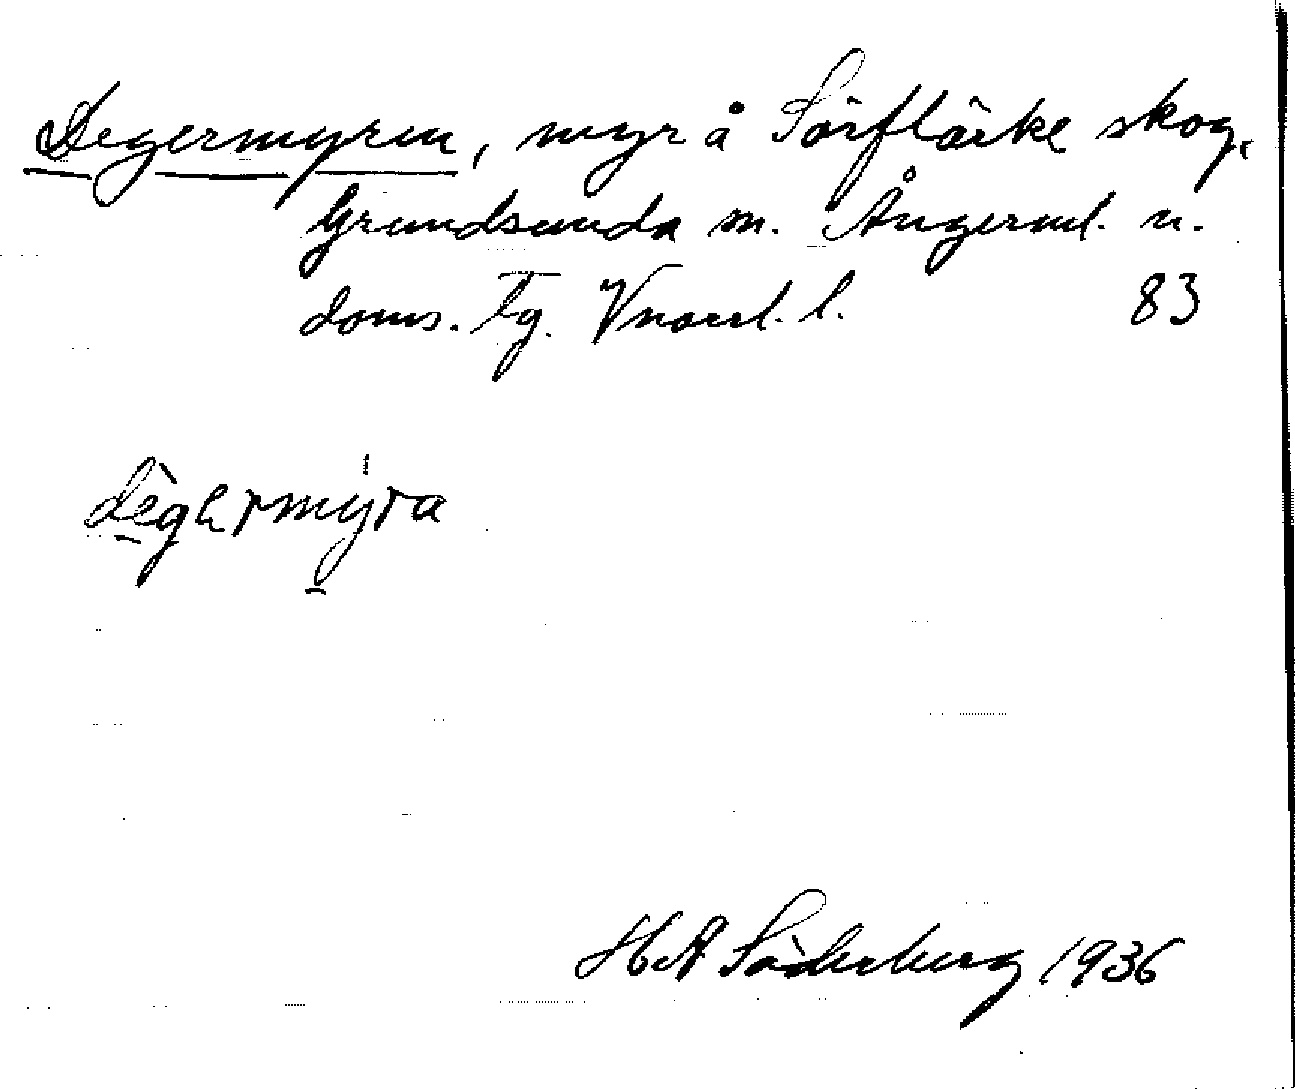 Degermyren, myr å Sörflärke skog,
Grundsunda sn. Ångerml. n.
doms. tg. Vnorrl. l. 83
degermyra
H A Söderberg 1936